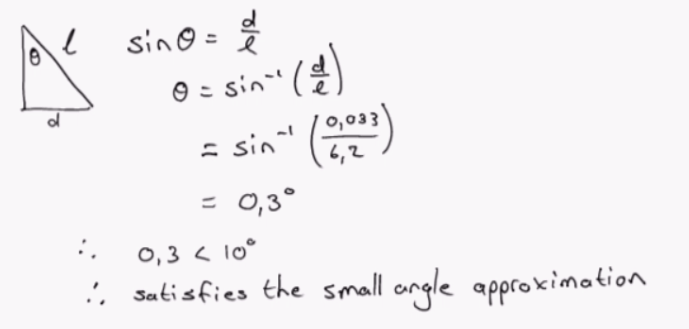 θ l sin θ = d/l
d θ = sin⁻¹ (d/l)
= sin⁻¹ (0,033/6,2)
= 0,3°
∴ 0,3 < 10°
∴ satisfies the small angle approximation